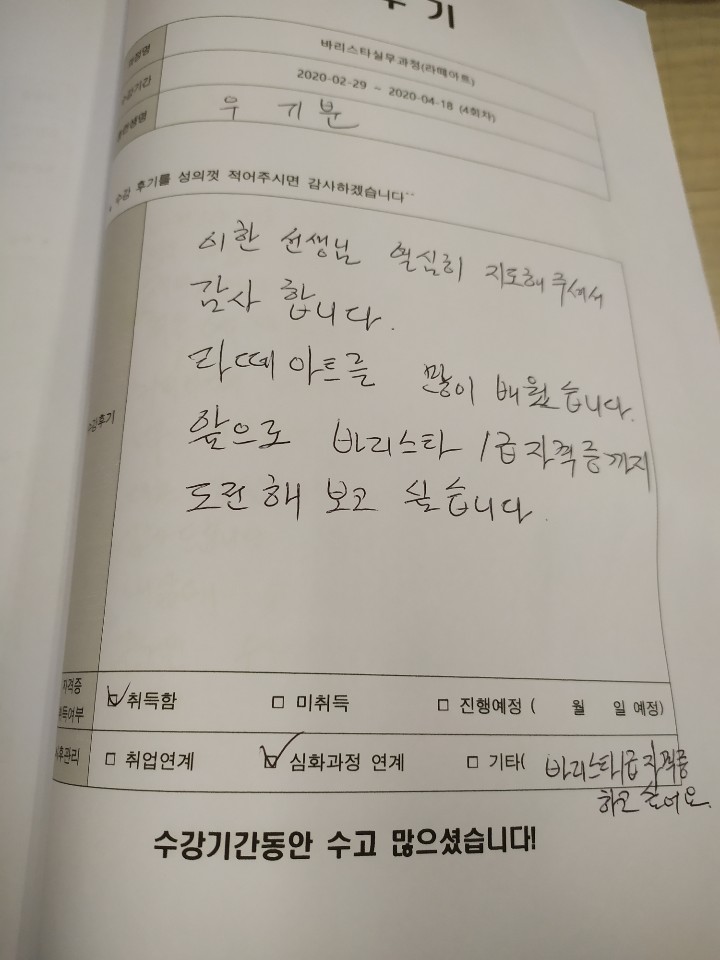 후 기
과정명 바리스타실무과정(라떼아트)
수강기간 2020-02-29 ~ 2020-04-18 (4회차)
훈련생명 우 기 분
* 수강 후기를 성의껏 적어주시면 감사하겠습니다^^
수강후기
이한 선생님 열심히 지도해 주셔서
감사 합니다.
라떼 아트를 많이 배웠습니다.
앞으로 바리스타 1급 자격증까지
도전해 보고 싶습니다.
자격증
취득여부 ☑ 취득함 □ 미취득 □ 진행예정 ( 월 일 예정)
사후관리 □ 취업연계 ☑ 심화과정 연계 □ 기타( 바리스타1급 자격증
하고 싶어요.
수강기간동안 수고 많으셨습니다!